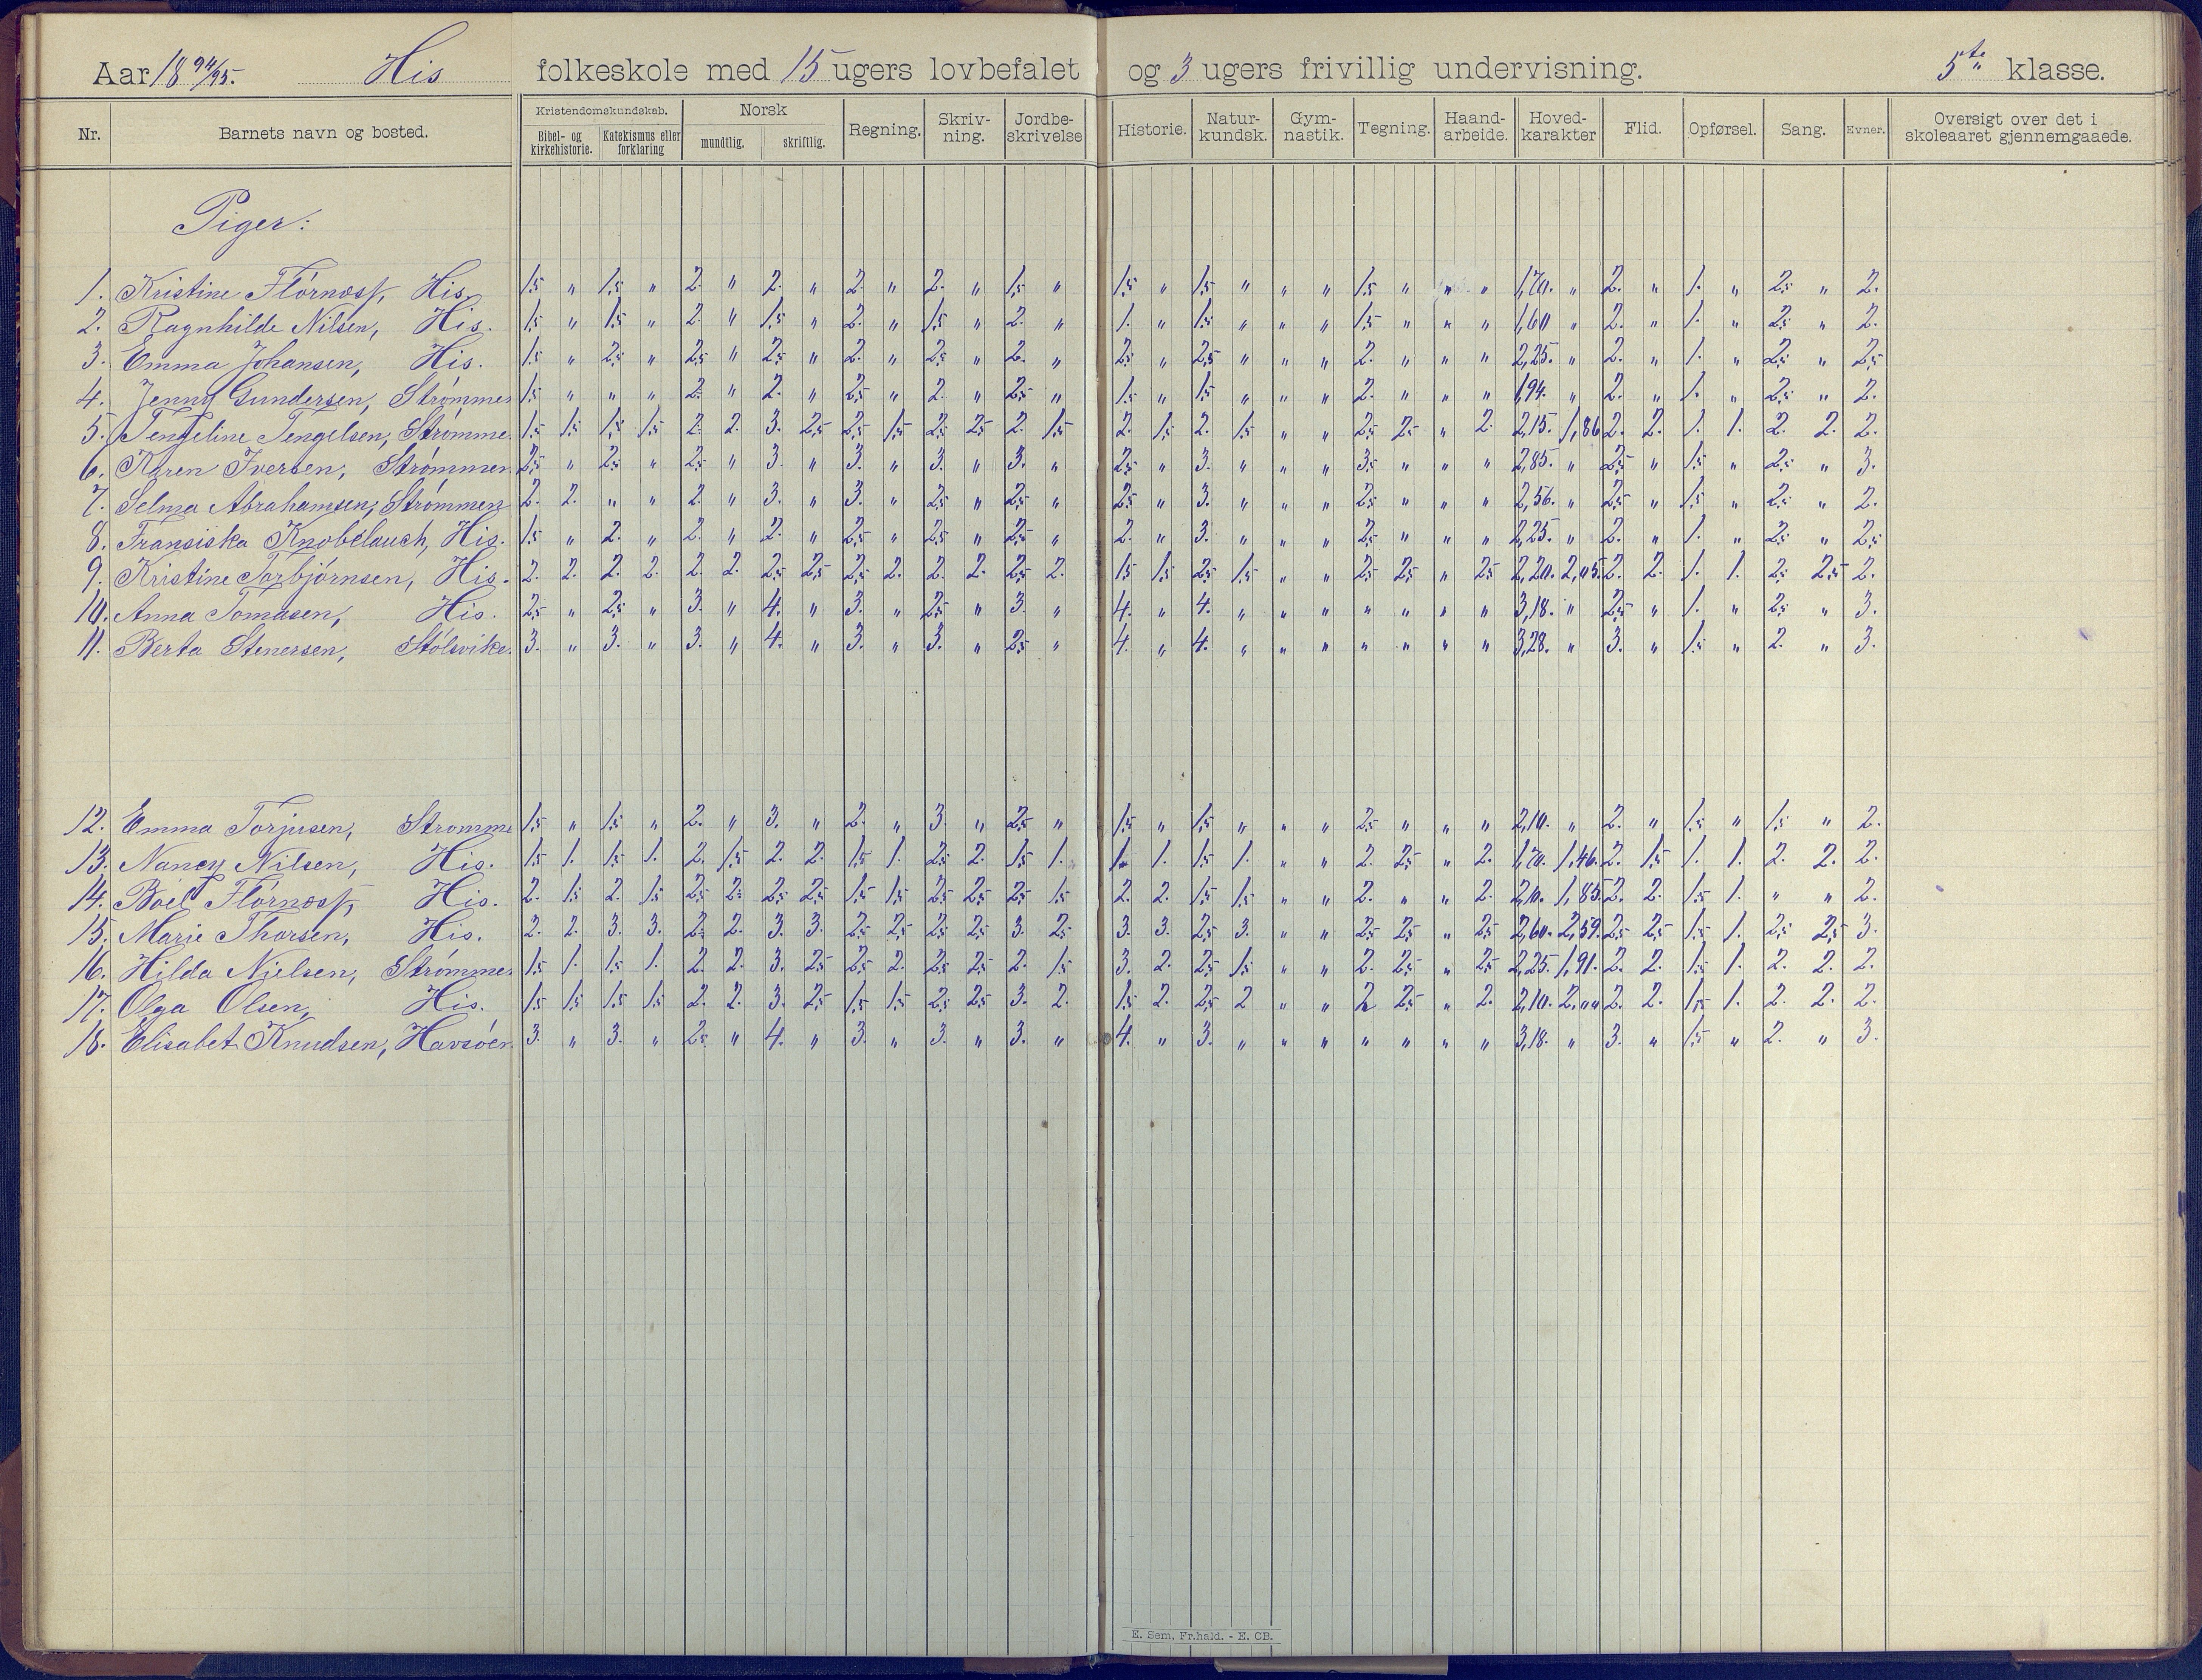 Aar 18 94/95. His folkeskole med 15 ugers lovbefalet og 3 ugers frivillig undervisning. 5te klasse.
Nr. Barnets navn og bosted. Kristendomskundskab. Bibel- og kirkehistorie. Katekismus eller forklaring Norsk mundtlig. skriftlig. Regning. Skriv-ning. Jordbe-skrivelse Historie. Natur-kundsk. Gym-nastik. Tegning. Haand-arbeide. Hoved-karakter Flid. Opførsel. Sang. Evner. Oversigt over det i skoleaaret gjennemgaaede.
Piger:
1. Kristine Flørnæss, His. 1,5 " 1,5 " 2. " 2. " 2. " 2. " 1,5 " 1,5 " 1,5 " " " 1,5 " " " 1,70. " 2. " 1. " 2,5 " 2.
2. Ragnhilde Nilsen, His. 1,5 " 1,5 " 2. " 1,5 " 2. " 1,5 " 2. " 1. " 1,5 " " " 1,5 " " " 1,60 " 2. " 1. " 2,5 " 2.
3. Emma Johansen, His. 1,5 " 2,5 " 2,5 " 2,5 " 2. " 2,5 " 2. " 2,5 " 2,5 " " " 2. " " " 2,25. " 2. " 1. " 2,5 " 2,5
4. Jenny Gundersen, Strømmen 1,5 " " " 2. " 2. " 2,5 " 2. " 2,5 " 1,5 " 1,5 " " " 2. " " " 1,94. " 2. " 1. " 2,5 " 2.
5. Tengeline Tengelsen, Strømme. 1,5 1,5 1,5 1,5 2. 2. 3. 2,5 2,5 1,5 2,5 2,5 2. 1,5 2. 1,5 2. 1,5 " " 2,5 2,5 " 2. 2,15. 1,86 2. 2. 1. 1. 2. 2. 2.
6. Karen Iversen, Strømmen 2,5 " 2,5 " 2,5 " 3. " 3. " 3. " 3. " 2,5 " 3. " " " 3,5 " " " 2,85. " 2,5 " 1,5 " 2,5 " 3.
7. Selma Abrahamsen, Strømmen 2. 2. " " 2. " 3. " 3. " 2,5 " 2,5 " 2,5 " 3. " " " 2,5 " " " 2,56. " 2,5 " 1,5 " 2,5 " 2.
8. Fransiska Knobelauch, His. 1,5 " 2. " 2. " 2. " 2,5 " 2,5 " 2,5 " 2. " 3. " " " 2,5 " " " 2,25. " 2. " 1. " 2,5 " 2,5
9. Kristine Torbjørnsen, His. 2. 2. 2. 2. 2. 2. 2,5 2,5 2,5 2. 2. 2. 2,5 2. 1,5 1,5 2,5 1,5 " " 2,5 2,5 " 2,5 2,20. 2,05. 2. 2. 1. 1. 2,5 2,5 2.
10. Anna Tomasen, His. 2,5 " 2,5 " 3. " 4. " 3. " 2,5 " 3. " 4. " 4. " " " " " " " 3,18. " 2,5 " 1. " 2,5 " 3.
11. Berta Stenersen, Stølsvike. 3. " 3. " 3. " 4. " 3. " 3. " 2,5 " 4. " 4. " " " " " " " 3,28. " 3. " 1,5 " 2. " 3.
12. Emma Torjusen, Strømme 1,5 " 1,5 " 2. " 3. " 2. " 3. " 2,5 " 1,5 " 1,5 " " " 2,5 " " " 2,10. " 2. " 1,5 " 1,5 " 2.
13. Nancy Nilsen, His. 1,5 1. 1,5 1. 2. 1,5 2. 2. 1,5 1. 2,5 2. 1,5 1. 1. 1. 1,5 1. " " 2. 2,5 " 2. 1,70. 1,46. 2. 1,5 1. 1. 2. 2. 2.
14. Boël Flørnæss, His. 2. 1,5 2. 1,5 2,5 2. 2,5 2,5 1,5 1,5 2,5 2,5 2,5 1,5 2. 2. 1,5 1,5 " " 2. " " 2. 2,10. 1,85. 2. 2. 1,5 1. " " 2.
15. Marie Thorsen, His. 2. 2. 3. 3. 2. 2. 3. 3. 2,5 2,5 2,5 2,5 3. 2,5 3. 3. 2,5 3. " " 2,5 2,5 " 2,5 2,60. 2,59. 2,5 2,5 1,5 1. 2,5 2,5 3.
16. Hilda Nielsen, Strømme. 1,5 1. 1,5 1. 2. 2. 3. 2,5 2,5 2. 2,5 2,5 2. 1,5 3. 2. 2,5 1,5 " " 2. 2,5 " 2,5 2,25. 1,91. 2. 2. 1,5 1. 2. 2. 2.
17. Olga Olsen, His. 1,5 1,5 1,5 1,5 2. 2. 3. 2,5 1,5 1,5 2,5 2,5 3. 2. 1,5 2. 2,5 2 " " 2 2,5 " 2. 2,10. 2,"" 2. 2. 1,5 1. 2. 2. 2.
18. Elisabet Knudsen, Havsøen 3. " 3. " 2,5 " 4. " 3. " 3. " 3. " 4. " 3. " " " " " " " 3,18. " 3. " 1,5 " 2. " 3.
E. Sem, Fr.hald. - E. CB.